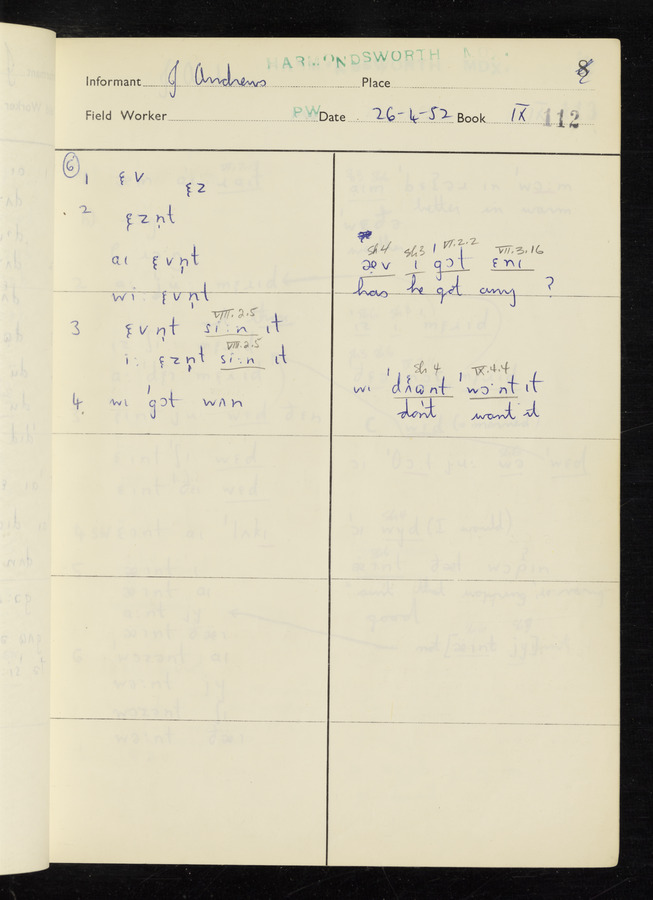 HARMONDSWORTH
8
Informant J Andrews Place
Field Worker PW Date 26-4-52 Book IX 112
6
1 ɛv ɛz
2 ɛzn̩t
aɪ ɛvn̩t
wi ɛvn̩t
3 ɛvn̩t si:n ɪt
VIII.2.5
i: ɛzn̩t si:n ɪt
VIII.2.5
4. wɪ ˈgɔt wʌn
sh4 sh3 VI.2.2 VII.3.16
i ˈgɔt ɛnɪ
has he got any ?
sh 4 IX.4.4
wɪ
don't want it